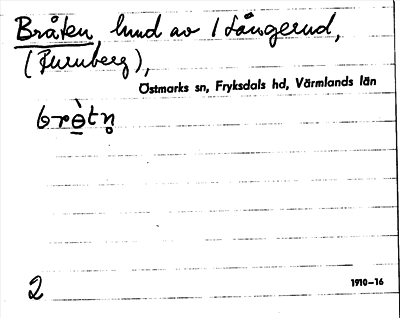 Bråten hmd av 1 Långerud,
(Furuberg),
Östmarks sn, Fryksdals hd, Värmlands län
brò̱tn̥
2
1910–16